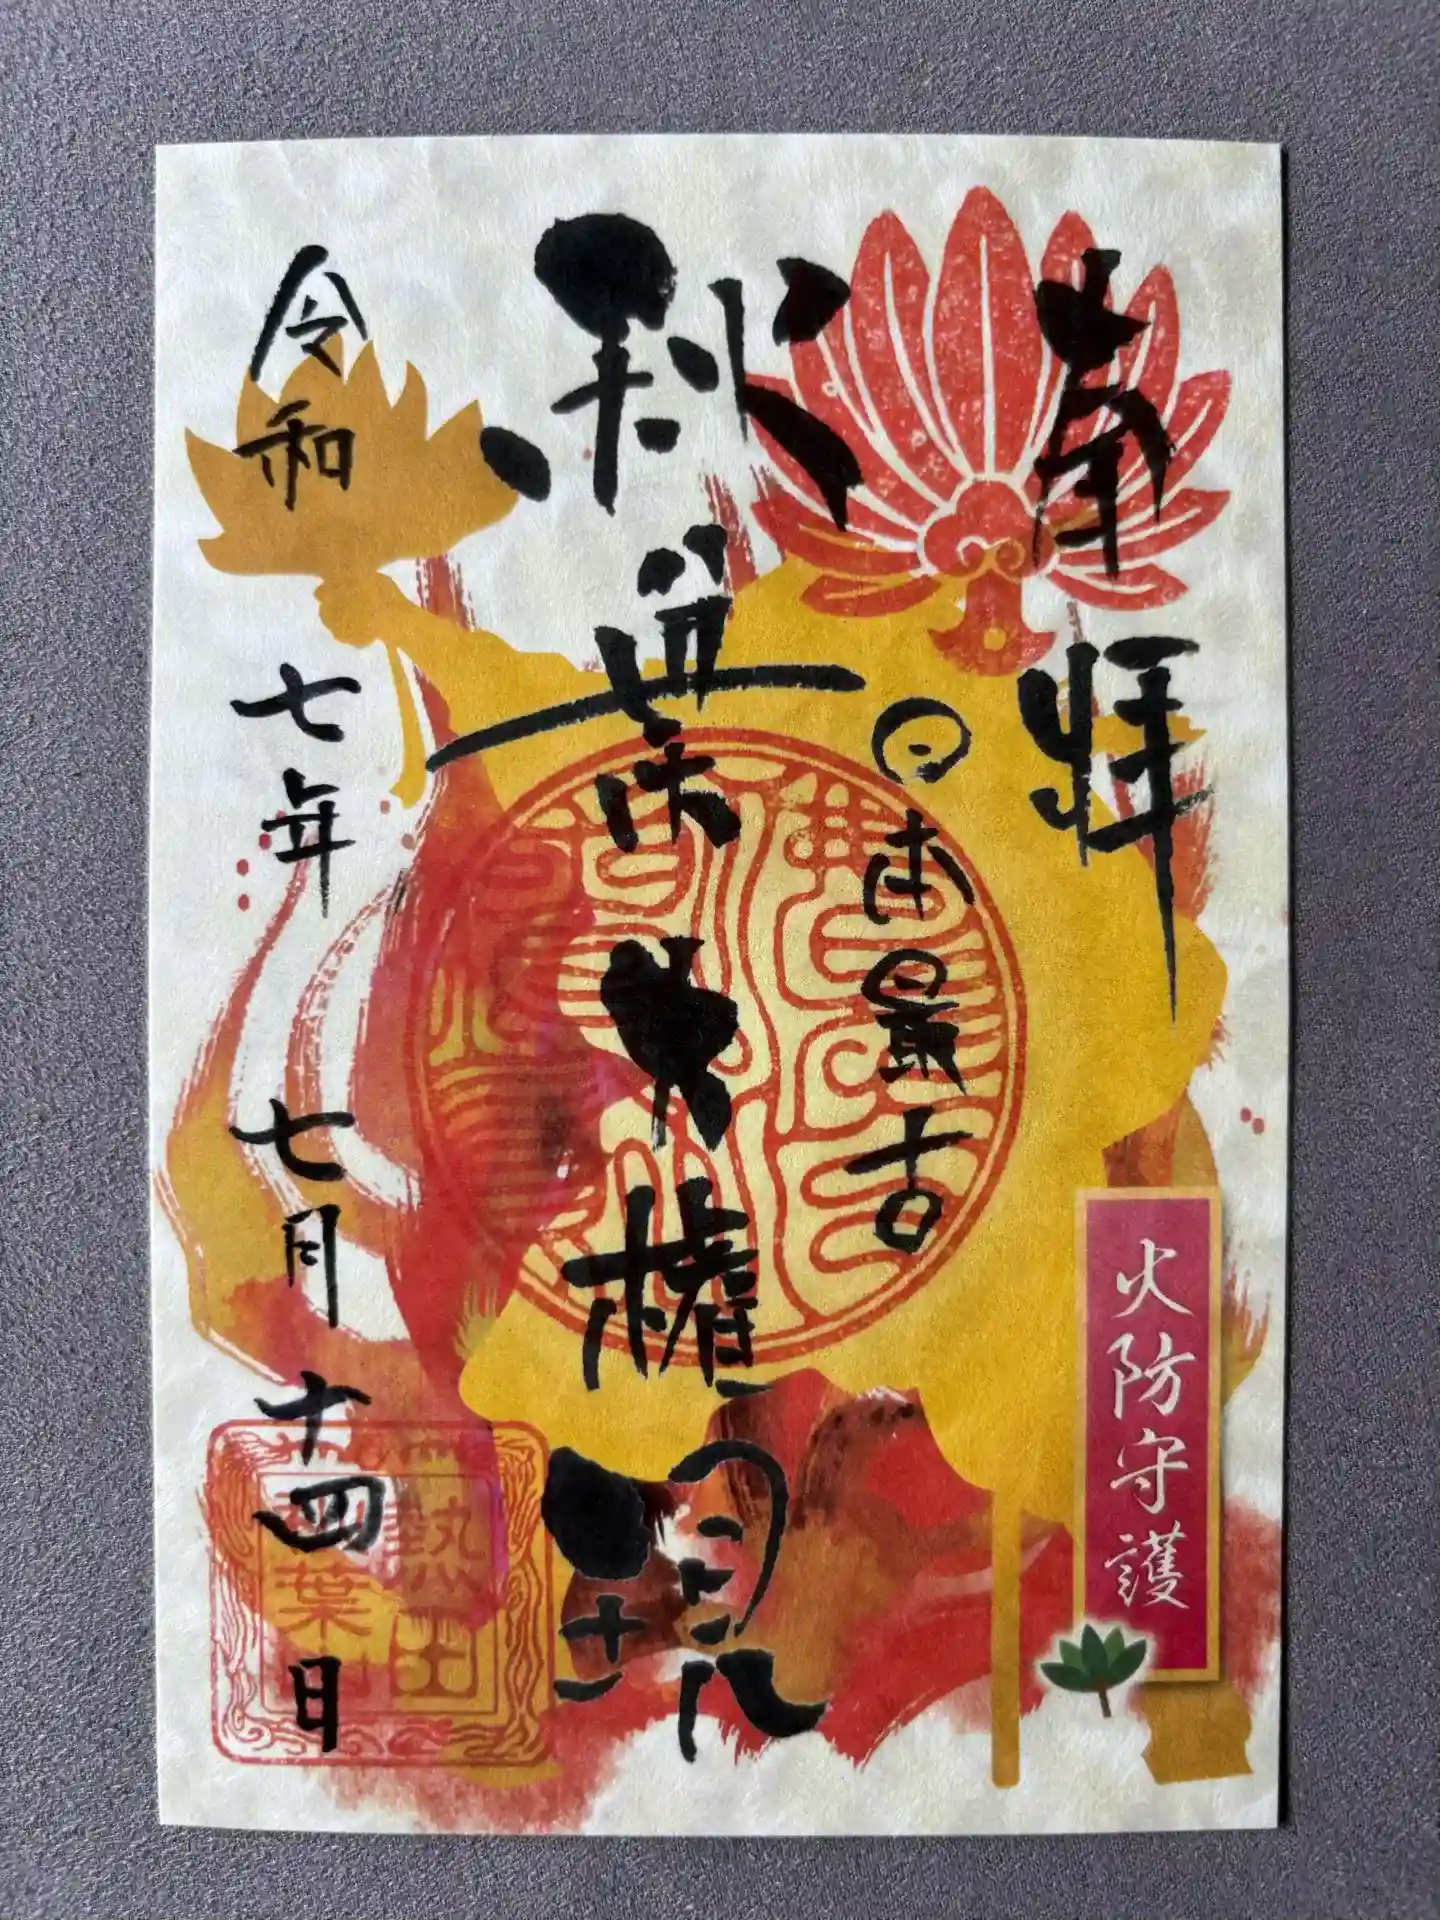 奉拝
日本最古
秋葉大権現
火防守護
令和七年七月十四日